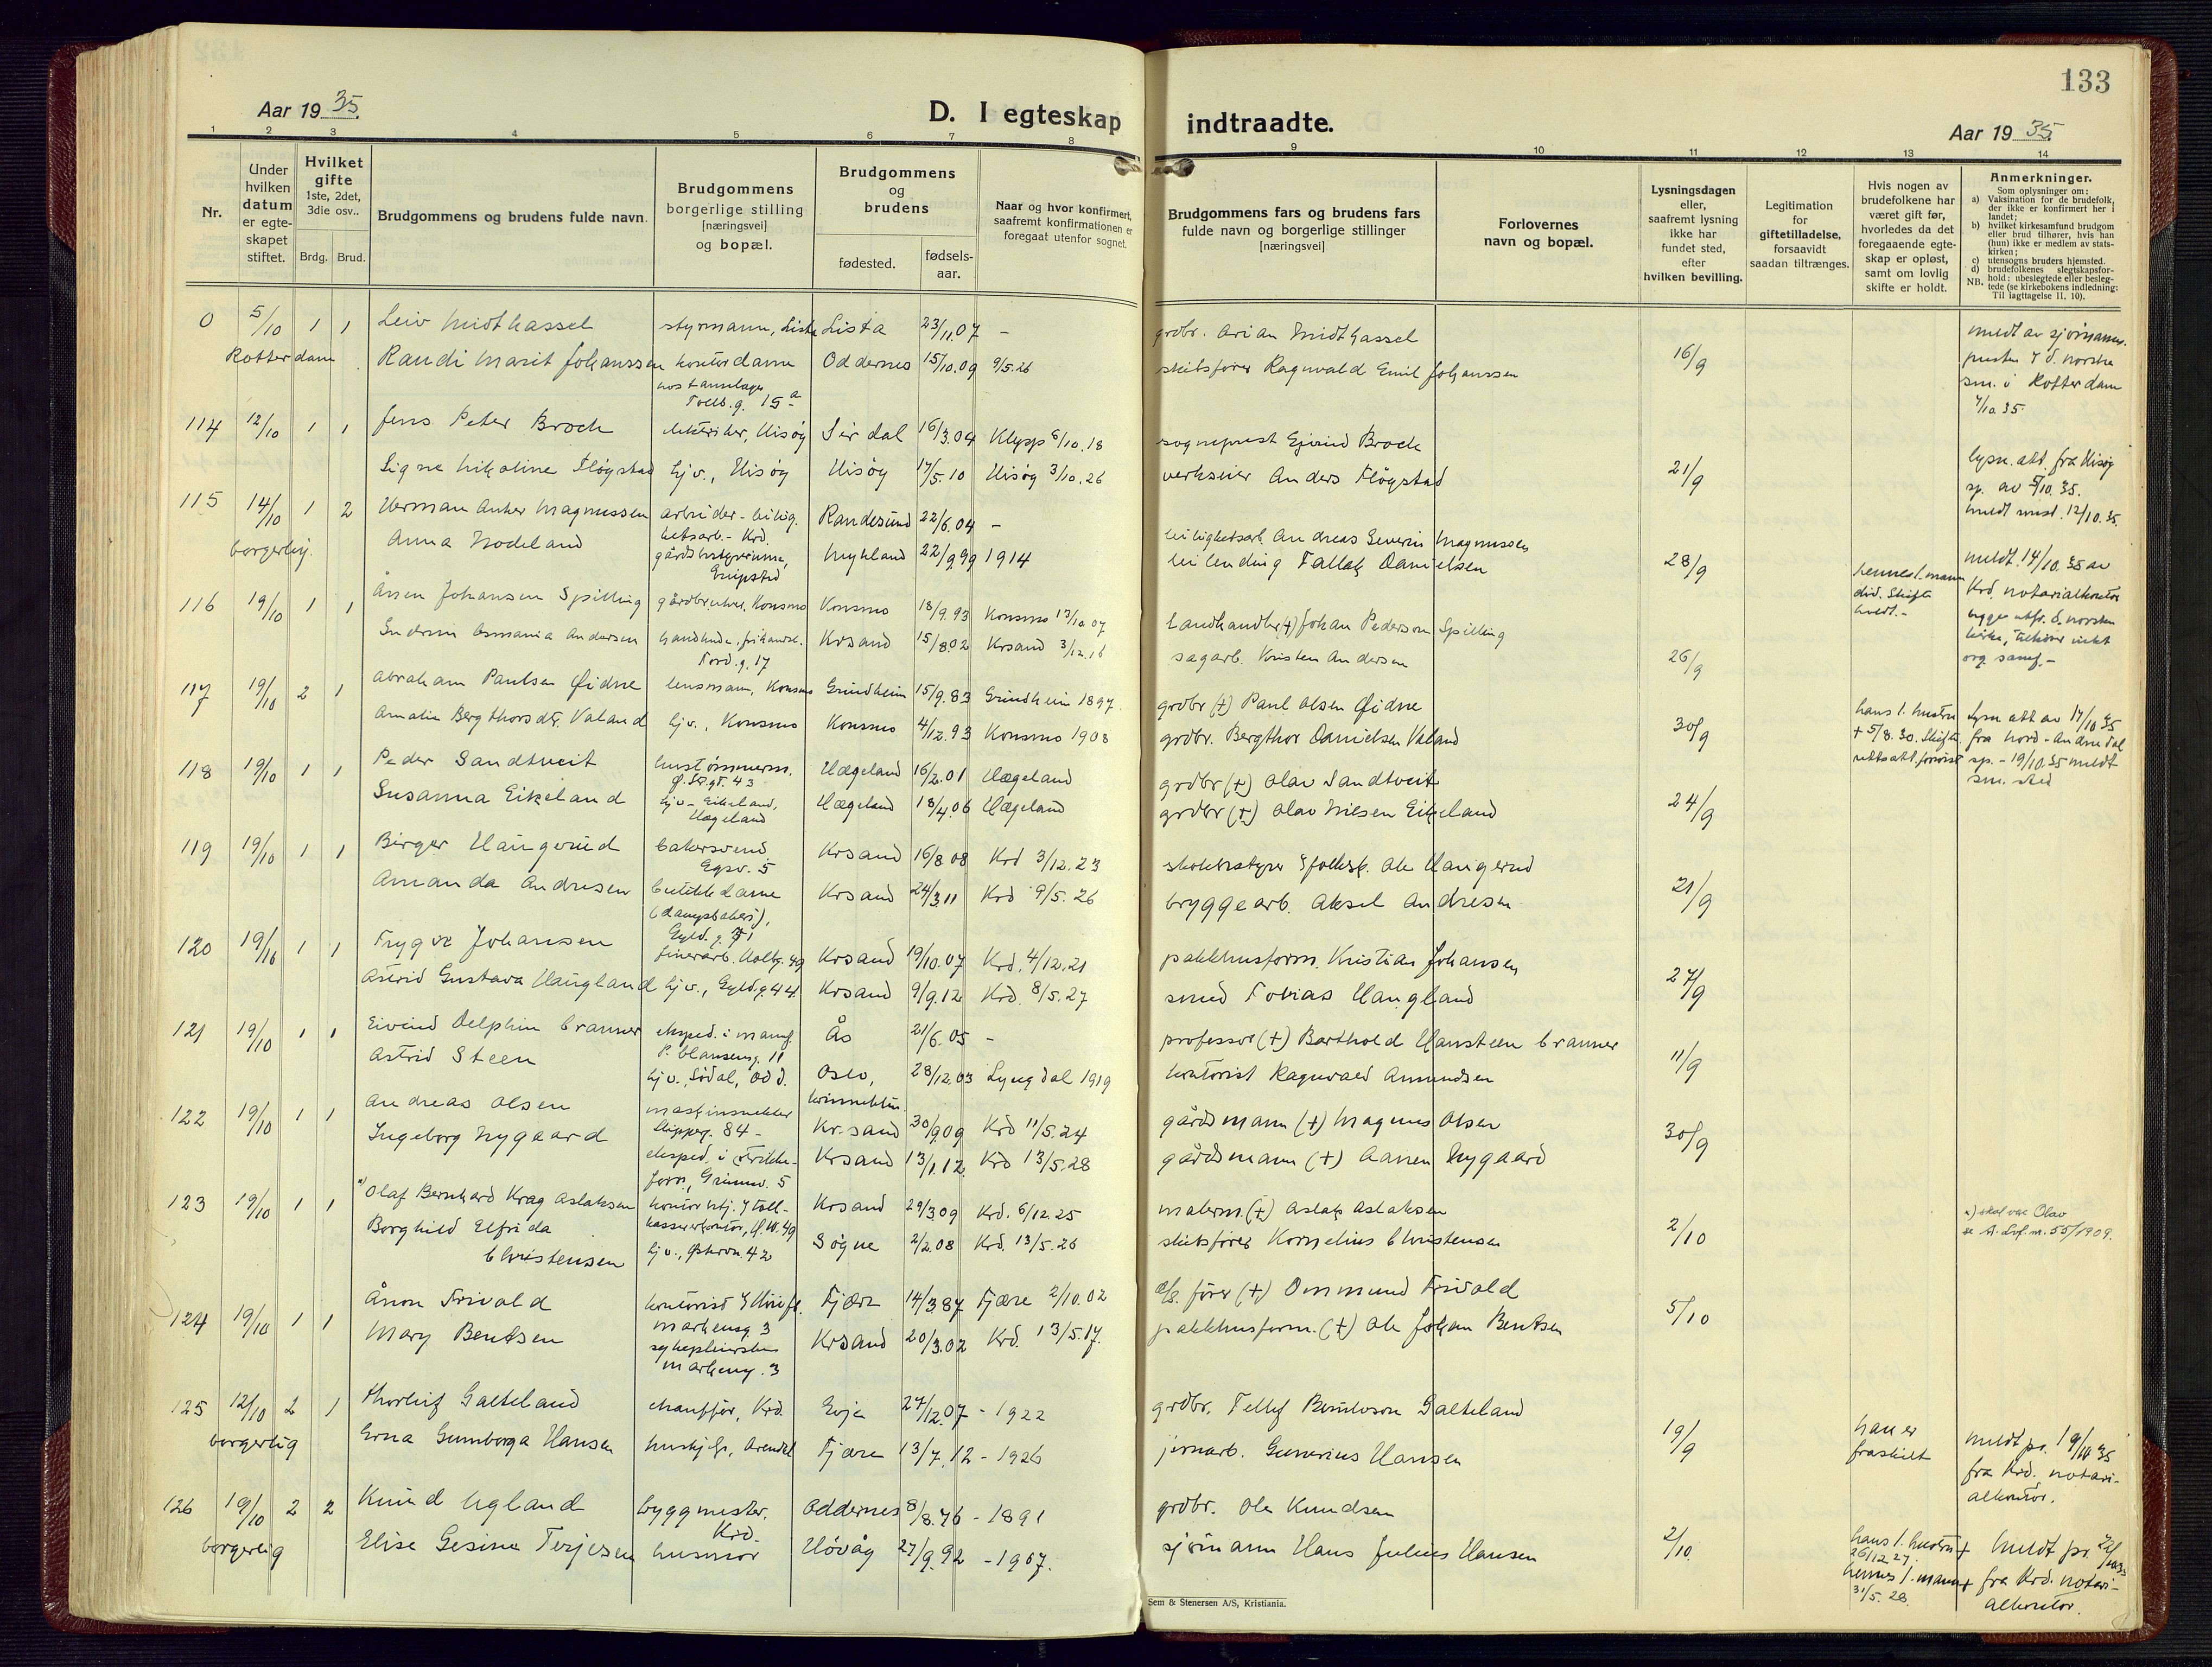 133
Aar 19 35.
D. I egteskap indtraadte.
Aar 19 35.
1 2 3 4 5 6 7 8 9 10 11 12 13 14
Nr.
Under hvilken datum er egte-skapet stiftet.
Hvilket gifte 1ste, 2det, 3die osv..
Brdg. Brud.
Brudgommens og brudens fulde navn.
Brudgommens borgerlige stilling [næringsvei] og bopæl.
Brudgommens og brudens
fødested.
fødsels-aar.
Naar og hvor konfirmert, saafremt konfirmationen er foregaat utenfor sognet.
Brudgommens fars og brudens fars fulde navn og borgerlige stillinger [næringsvei]
Forlovernes navn og bopæl.
Lysningsdagen eller, saafremt lysning ikke har fundet sted, efter hvilken bevilling.
Legitimation for giftetilladelse, forsaavidt saadan tiltrænges.
Hvis nogen av brudefolkene har været gift før, hvorledes da det foregaaende egte-skap er opløst, samt om lovlig skifte er holdt.
Anmerkninger.
Som oplysninger om:
a) Vaksination for de brudefolk, der ikke er konfirmert her i landet;
b) hvilket kirkesamfund brudgom eller brud tilhører, hvis han (hun) ikke er medlem av stats-kirken;
c) utensogns bruders hjemsted.
d) brudefolkenes slegtskapsfor-hold: ubeslegtede eller besleg-tede (se kirkebokens indledning: NB. Til iagttagelse II, 10).
0 5/10 1 1 Leiv Midthassel styrmann, Lista Lista 23/11.07 - grdbr. Arian Midthassel
Rotterdam Randi Marit Johanssen kontordame Oddernes 15/10.09 9/5.26 skibsfører Ragnvald Emil Johanssen 16/9
Tollb.g. 15a
meldt av sjømanns-
presten i d. norske
sm. i Rotterdam
7/10 35.
114 12/10 1 1 Jens Peter Broch elektriker, Hisøy Sirdal 16/3.04 Klepp 6/10.18 sogneprest Ejvind Broch
Signe Nikoline Fløgstad hjv., Hisøy Hisøy 17/5.10 Hisøy 3/10.26 verkseier Anders Fløgstad 21/9
lysn. att. fra Hisøy
sp. av 5/10.35.
115 14/10 1 2 Herman Anker Magnussen arbeider - leilig. hetsarb. - Krd. Randesund 22/6.04 - leilighetsarb. Andreas Severin Magnussen
borgerlig. Anna Nodeland Mykland 22/9.99 1914 leilending Tallak Danielsen 28/9
hennes 1. mann
død. Skifte
holdt.-
meldt 14/10.35 av
Krd. notarialkontor
116 19/10 1 1 Ånen Johansen Spilling gårdbruker, Konsmo Konsmo 18/9.93 Konsmo 13/10 07 landhandler (+) Johan Pederson Spilling
Gudrun Osmania Andersen Krsand 15/8.02 Krsand 3/12.16 sagarb. Kristen Andersen 26/9
Tord.g. 17
117 19/10 2 1 Abraham Paulsen Øidne lensmann, Konsmo Grindheim 15/9.83 Grindheim 1897. grdbr (+) Paul Olsen Øidne
Amalie Bergthorsdtr. Valand hjv., Konsmo Konsmo 4/12.93 Konsmo 1908 grdbr. Bergthor Danielsen Valand 30/9
hans 1. hustru
+ 5/8.30. Skifte
lysn att av 17/10 35
fra Nord-Audnedal
sp. - 19/10.35 meldt
sm. sted
118 19/10 1 1 Peder Sandtveit hustømmerm. Hægeland 16/2.01 Hægeland grdbr (+) Olav Sandtveit
Susanna Eikeland hjv - Eikeland, Hægeland Hægeland 18/4.06 Hægeland grdbr (+) Olav Nilsen Eikeland 24/9
119 19/10 1 1 Birger Haugerud bakersvend Egsv. 5 Krsand 16/8 08 Krd 3/12.23 Ole Haugerud
Amanda Andresen butikkdame (dampbakeri), Krsand 24/3.11 Krd 9/5.26 bryggearb. Aksel Andresen 21/9
120 19/10 1 1 Trygve Johansen finerarb. Holbg. 49 Krsand 19/10.07 Krd. 4/12.21 pakkhusform. Kristian Johansen
Astrid Gustava Haugland hjv., Gyld.g. 44 Krsand 9/9.12 Krd. 8/5.27 smed Tobias Haugland 27/9
121 19/10 1 1 Eivind Delphin Cranner eksped. i manuf. P. Clauseng. 11 Ås 21/6.05 - professor (+) Barthold Hansteen Cranner
Astrid Steen hjv., Sødal, Odd. Oslo, 28/12.03 Lyngdal 1919 kontorist Ragnvald Amundsen 11/9
122 19/10 1 1 Andreas Olsen maskinsnekker Skipperg. 84 - Kr.sand 30/9.09 Krd 11/5.24 gårdsmann (+) Magnus Olsen
Ingeborg Nygaard eksped. i Trikke-forr., Grimsv. 5 Krsand 13/1.12 Krd 13/5.28 gårdsmann (+) Aanen Nygaard 30/9
123 19/10 1 1 *) Olaf Bernhard Krag Aslaksen Krsand 29/3.09 Krd. 6/12.25 malerm. (+) Aslak Aslaksen
Borghild Elfrida Christensen hjv., Østervn 42 Søgne 2/2.08 Krd. 13/5.26 skibsfører Kornelius Christensen 2/10
*) skal være Olav
se A. Lnf. nr. 55/1909.
124 19/10 1 1 Ånon Frivold Markensg. 3 Fjære 14/3.87 Fjære 2/10.02 fører (+) Ommund Frivold
Mary Bentsen sykepleierske Markensg. 3 Krsand 20/3.02 Krd. 13/5.17. pakkhusform. (+) Ole Johan Bentsen 5/10
125 12/10 2 1 Thorleif Galteland chauffør, Krd. Evje 27/12.07 - 1922 grdbr. Tellef Galteland
borgerlig Erna Gunborga Hansen hushj., Arendal Fjære 13/7.12 - 1926 jernarb. Gunerius Hansen 19/9
han er
fraskilt
meldt pr. 19/10 35
fra Krd. notari-
alkontor.
126 19/10 2 2 Knud Ugland byggmester. Krd. Oddernes 8/8.76 - 1891 grdbr. Ole Knudsen
borgerlig Elise Gesine Terjesen husmor Høvåg 27/9.92 - 1907. sjømann Hans Julius Hansen 2/10
hans 1. hustru +
26/12 27.
hennes 1. mann +
31/5. 28.
meldt pr.
fra Krd. notari-
alkontor.
Sem & Stenersen A/S, Kristiania.